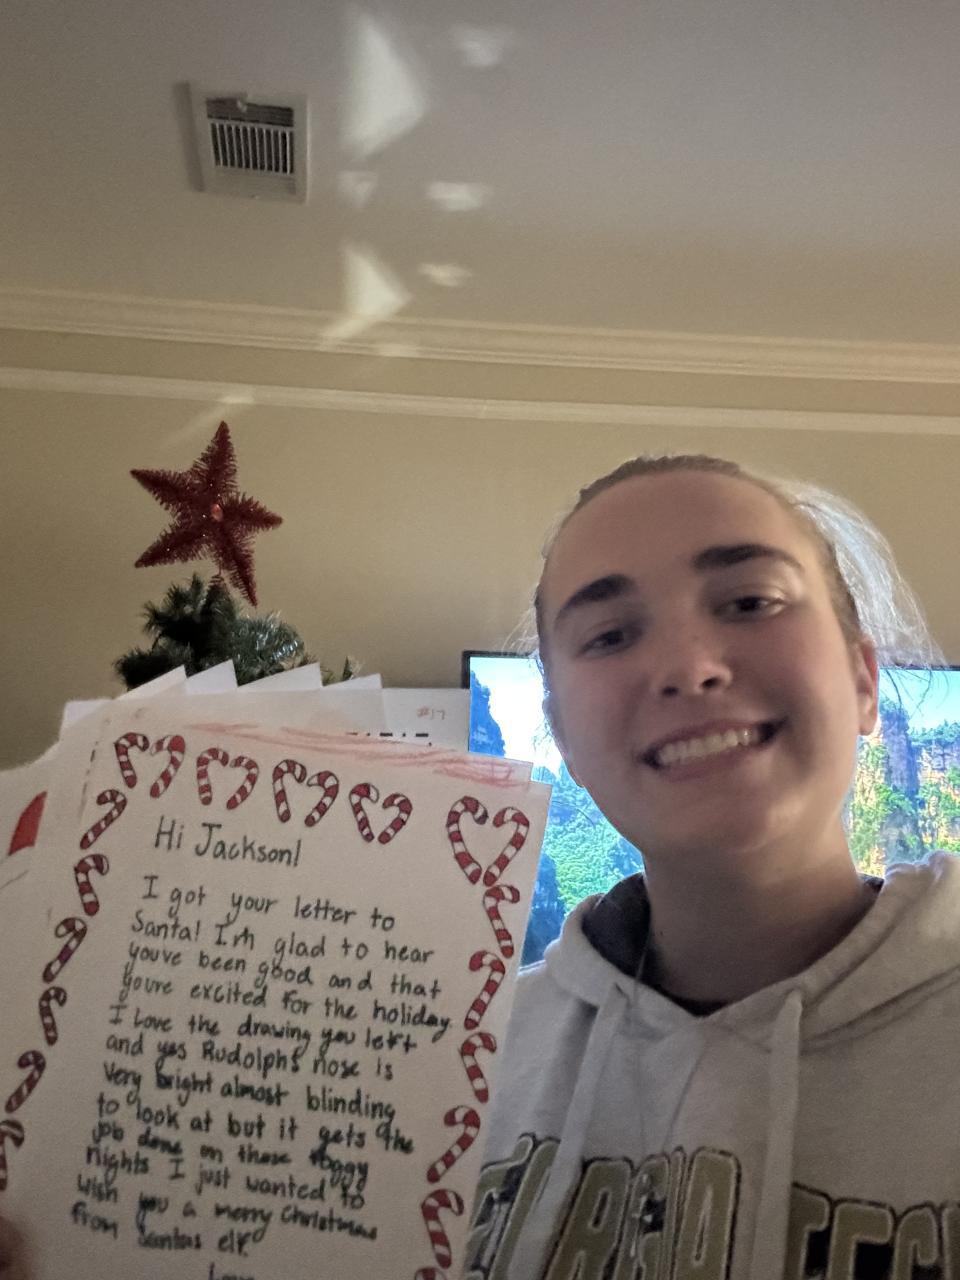 #17
Hi Jackson!
I got your letter to
Santa! I'm glad to hear
youve been good and that
youre excited for the holiday.
I Love the drawing you left
and yes Rudolphs nose is
very bright almost blinding
to look at but it gets the
job done on those foggy
nights I just wanted to
wish you a merry christmas
from santas elf.
Love
GEORGIA TECH